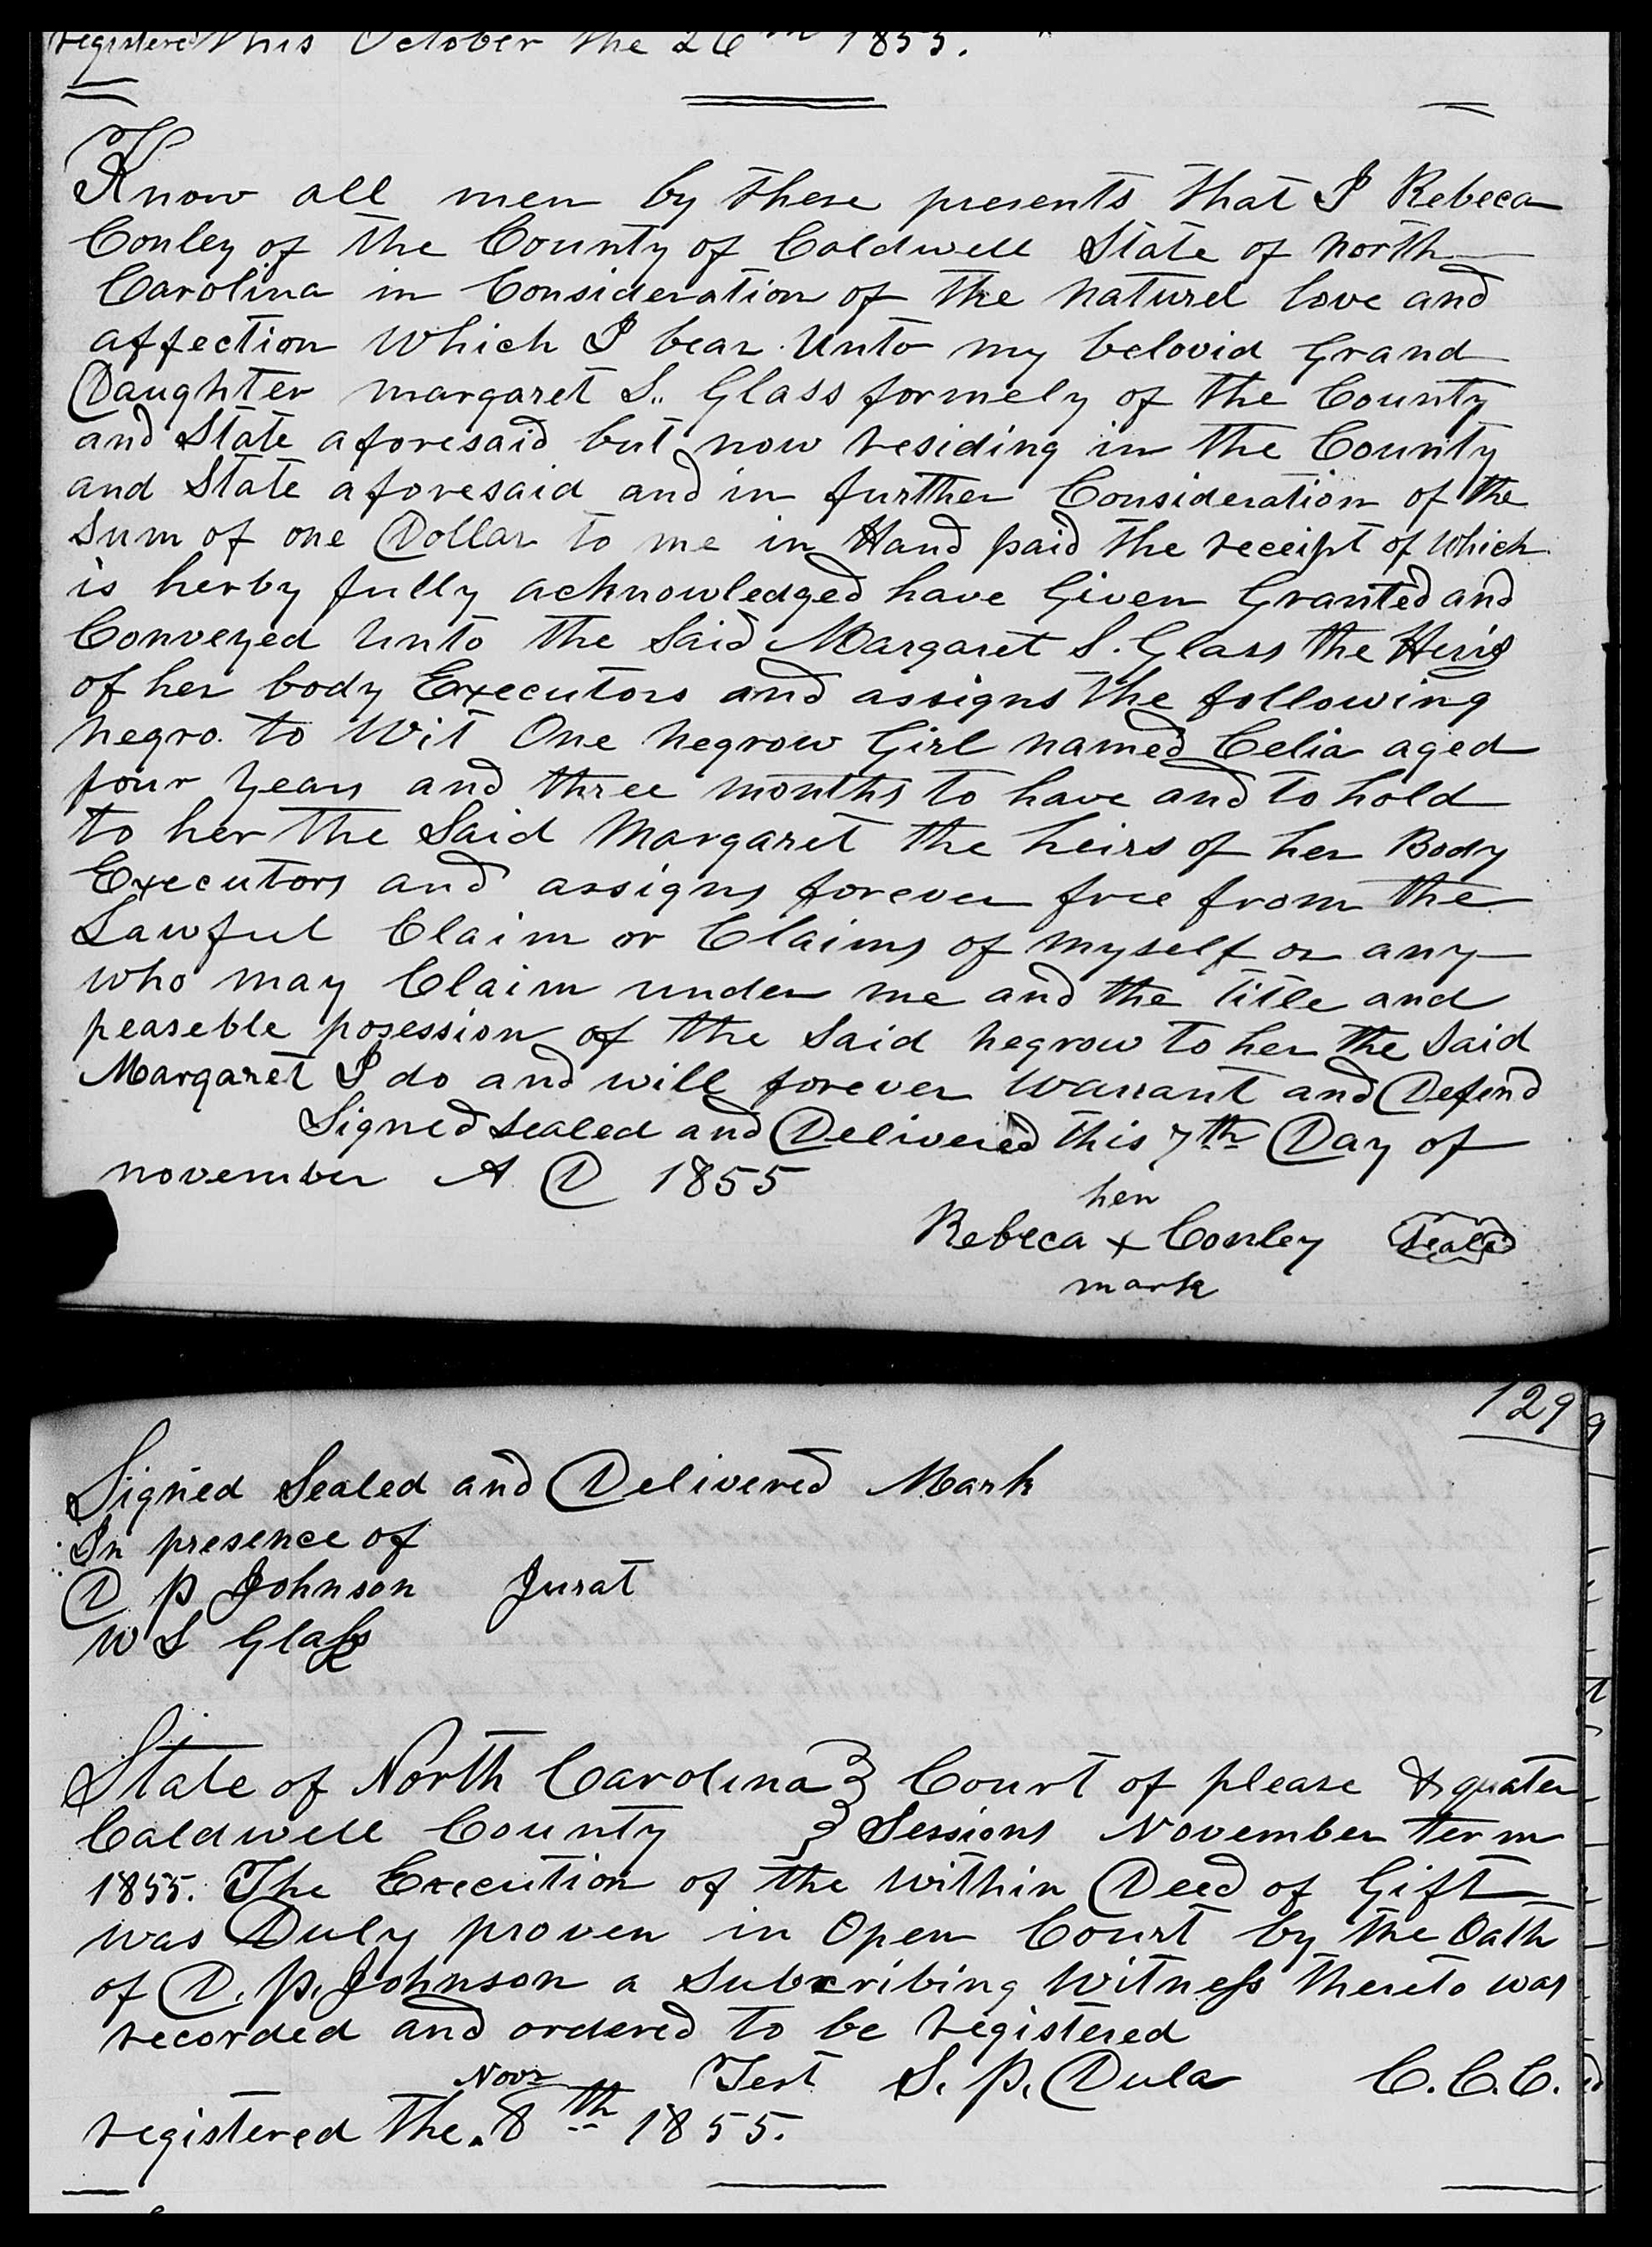 registered this October the 26th 1855.
Know all men by these presents that I Rebeca
Conley of the County of Caldwell State of North
Carolina in Consideration of the naturel love and
affection Which I bear Unto my belovid Grand
Daughter margaret S.. Glass formely of the County
and State aforesaid but now residing in the County
and State aforesaid and in further Consideration of the
Sum of one Dollar to me in Hand paid the receipt of Which
is herby fully acknowledged have Given Granted and
Conveyed Unto the Said Margaret S. Glass the Heirs
of her body Executors and assigns the following
negro. to Wit One negrow Girl named Celia aged
four years and three months to have and to hold
to her the Said Margaret the heirs of her Body
Executors and assigns forever free from the
Lawful Claim or Claims of myself or any
who may Claim under me and the title and
peaseble posession of the Said negrow to her the Said
Margaret I do and will forever Warrant and Defend
Signed sealed and Delivered this 7th Day of
november A D 1855
her
Rebeca x Conley Seale
mark
129
Signed Sealed and Delivered Mark
In presence of
D P Johnson Jurat
W S Glass
State of North Carolina } Court of please & quater
Caldwell County } Sessions November term
1855. The Execution of the Within Deed of Gift
was Duly proven in Open Court by the Oath
of D. P. Johnson a Subcribing Witness thereto was
recorded and ordered to be registered
Novr Test S. P. Dula C.C.C.
registered the 8th 1855.